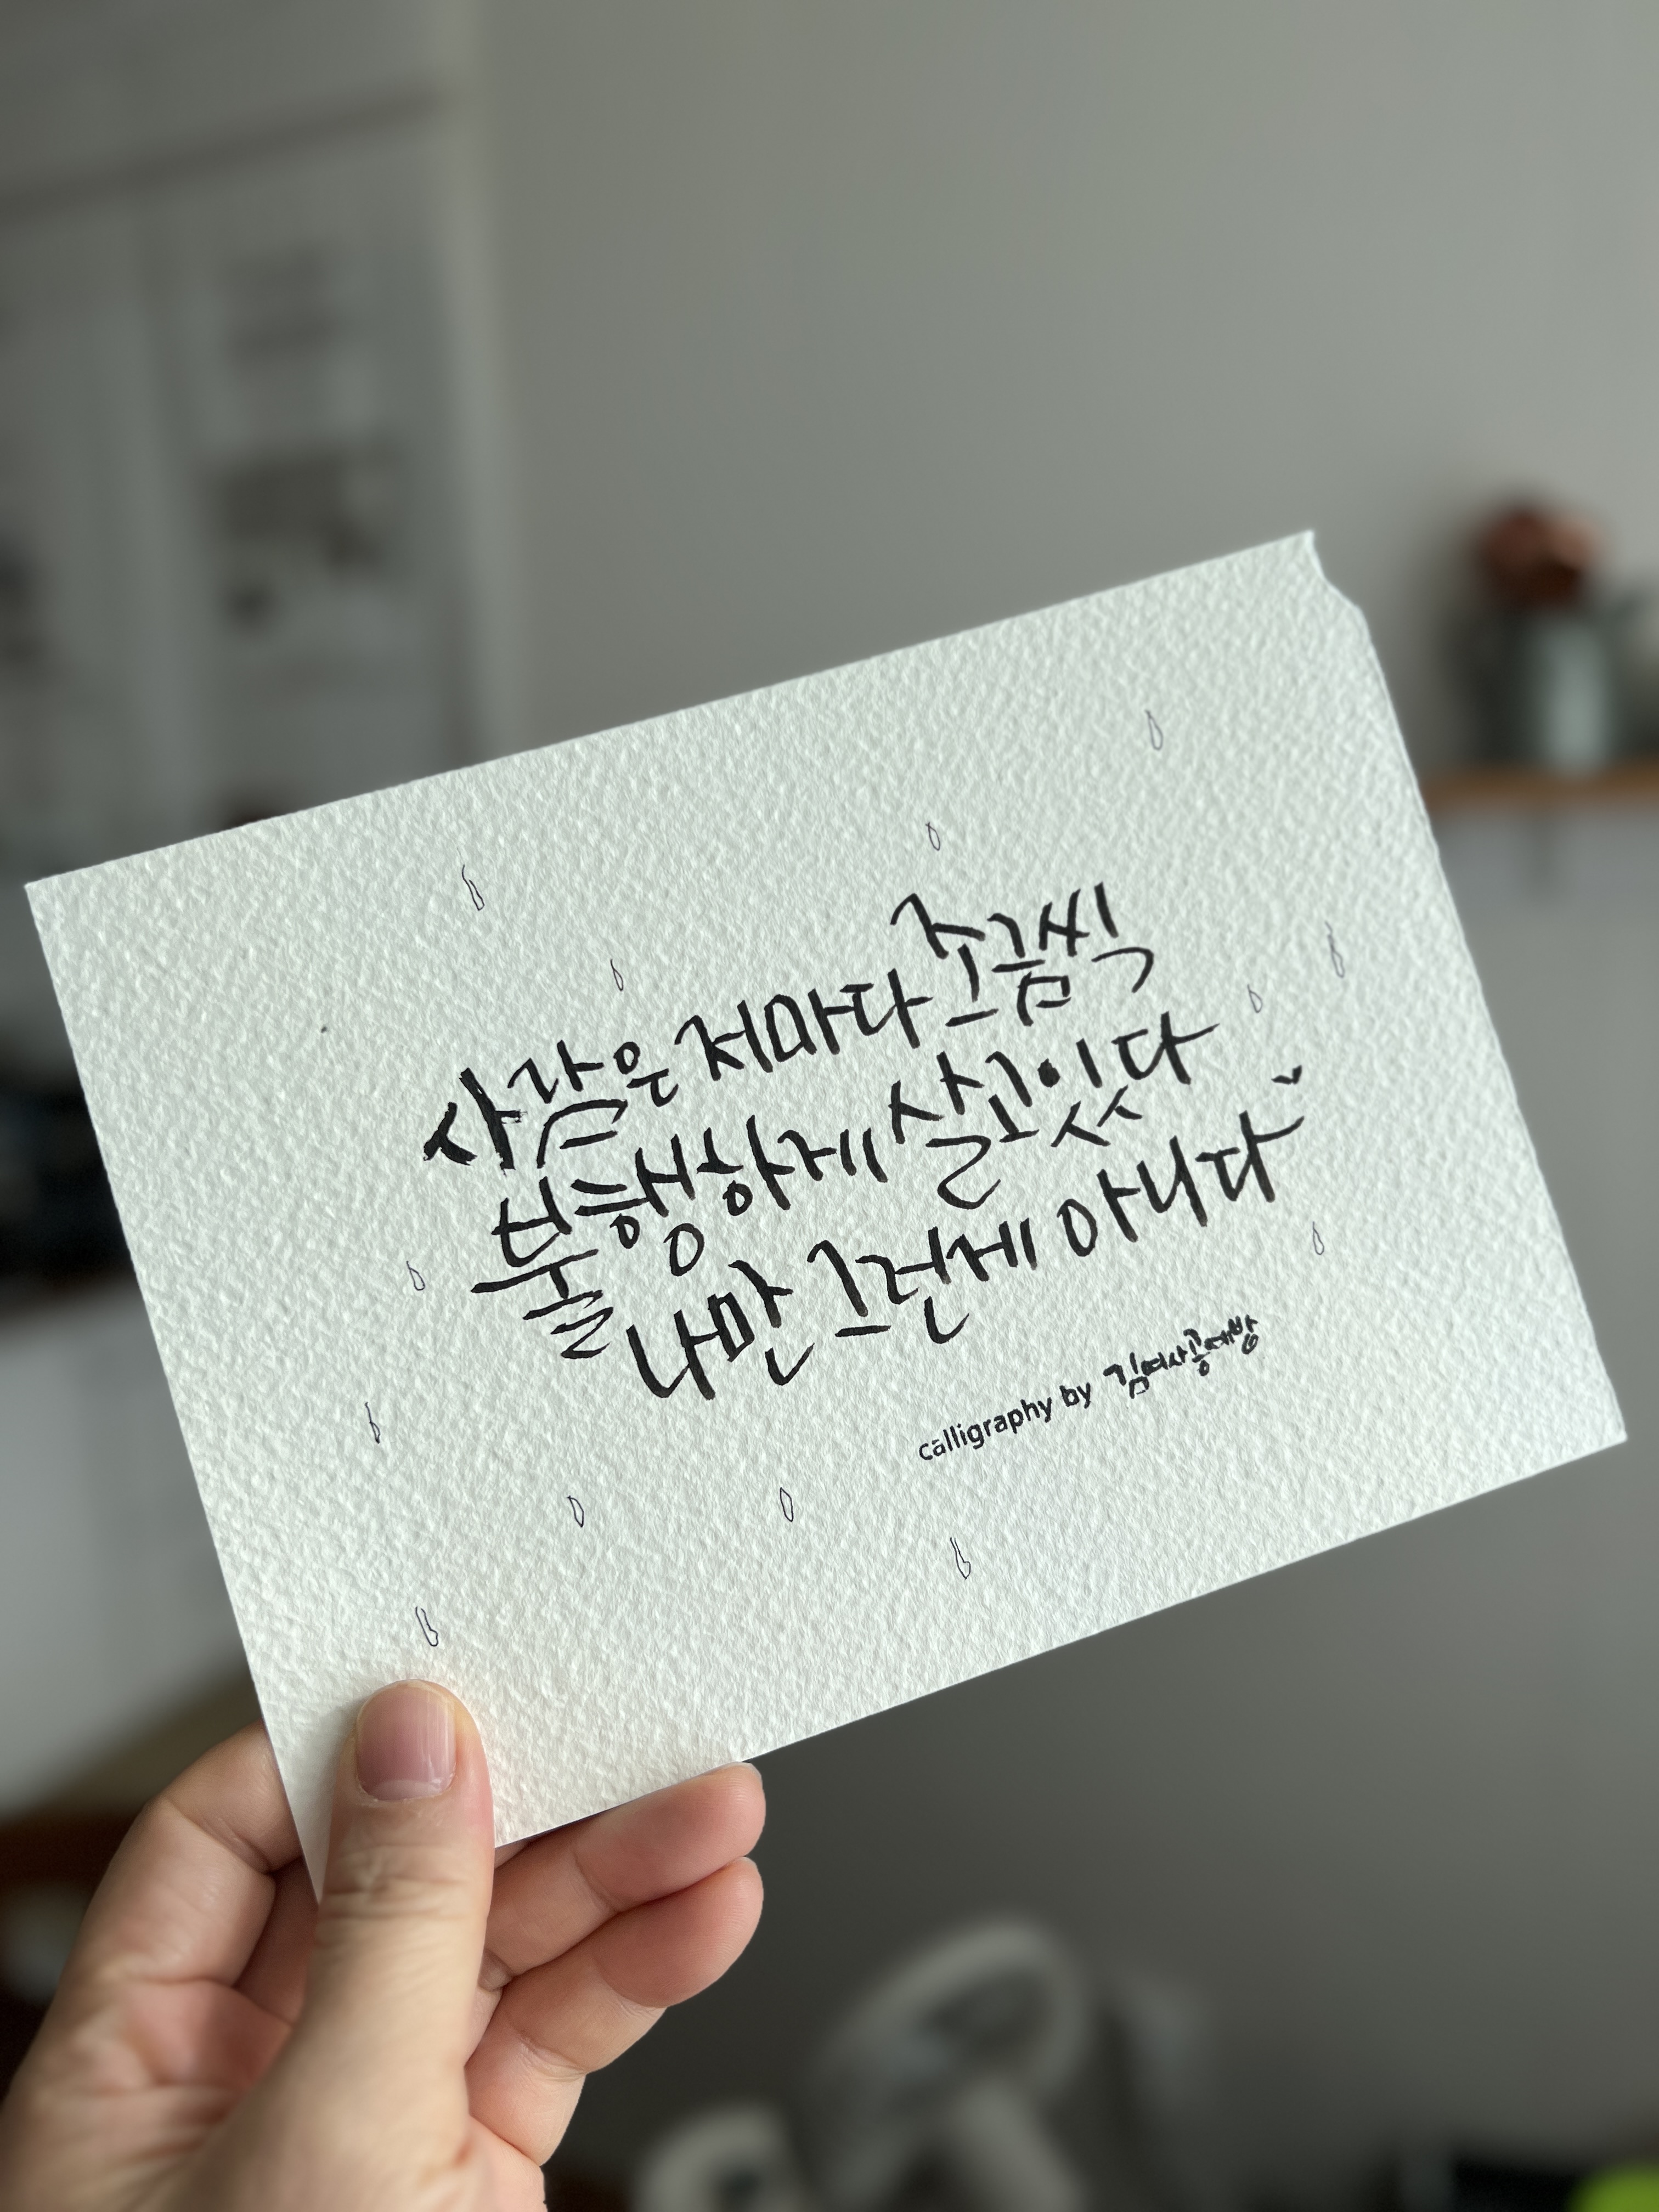 사람은 저마다 조금씩
불행하게 살고있다
나만 그런게 아니다
calligraphy by 김여사공예방